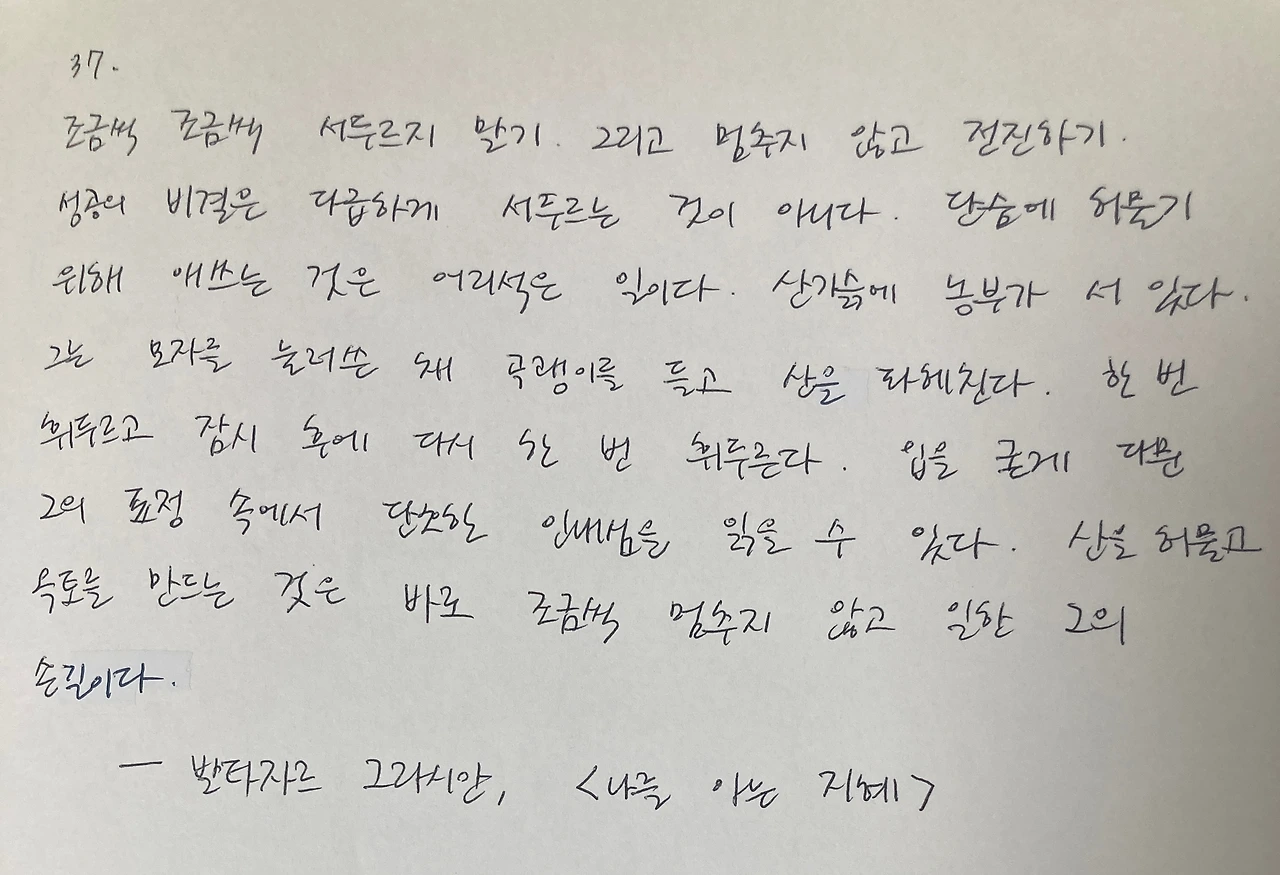 37.
조금씩 조금씩 서두르지 말기. 그리고 멈추지 않고 전진하기.
성공의 비결은 다급하게 서두르는 것이 아니다. 단숨에 허물기
위해 애쓰는 것은 어리석은 일이다. 산기슭에 농부가 서 있다.
그는 모자를 눌러쓴 채 곡괭이를 들고 산을 파헤친다. 한 번
휘두르고 잠시 후에 다시 한 번 휘두른다. 입을 굳게 다문
그의 표정 속에서 단호한 인내심을 읽을 수 있다. 산을 허물고
옥토를 만드는 것은 바로 조금씩 멈추지 않고 일한 그의
손길이다.
— 발타자르 그라시안, <나를 아는 지혜>